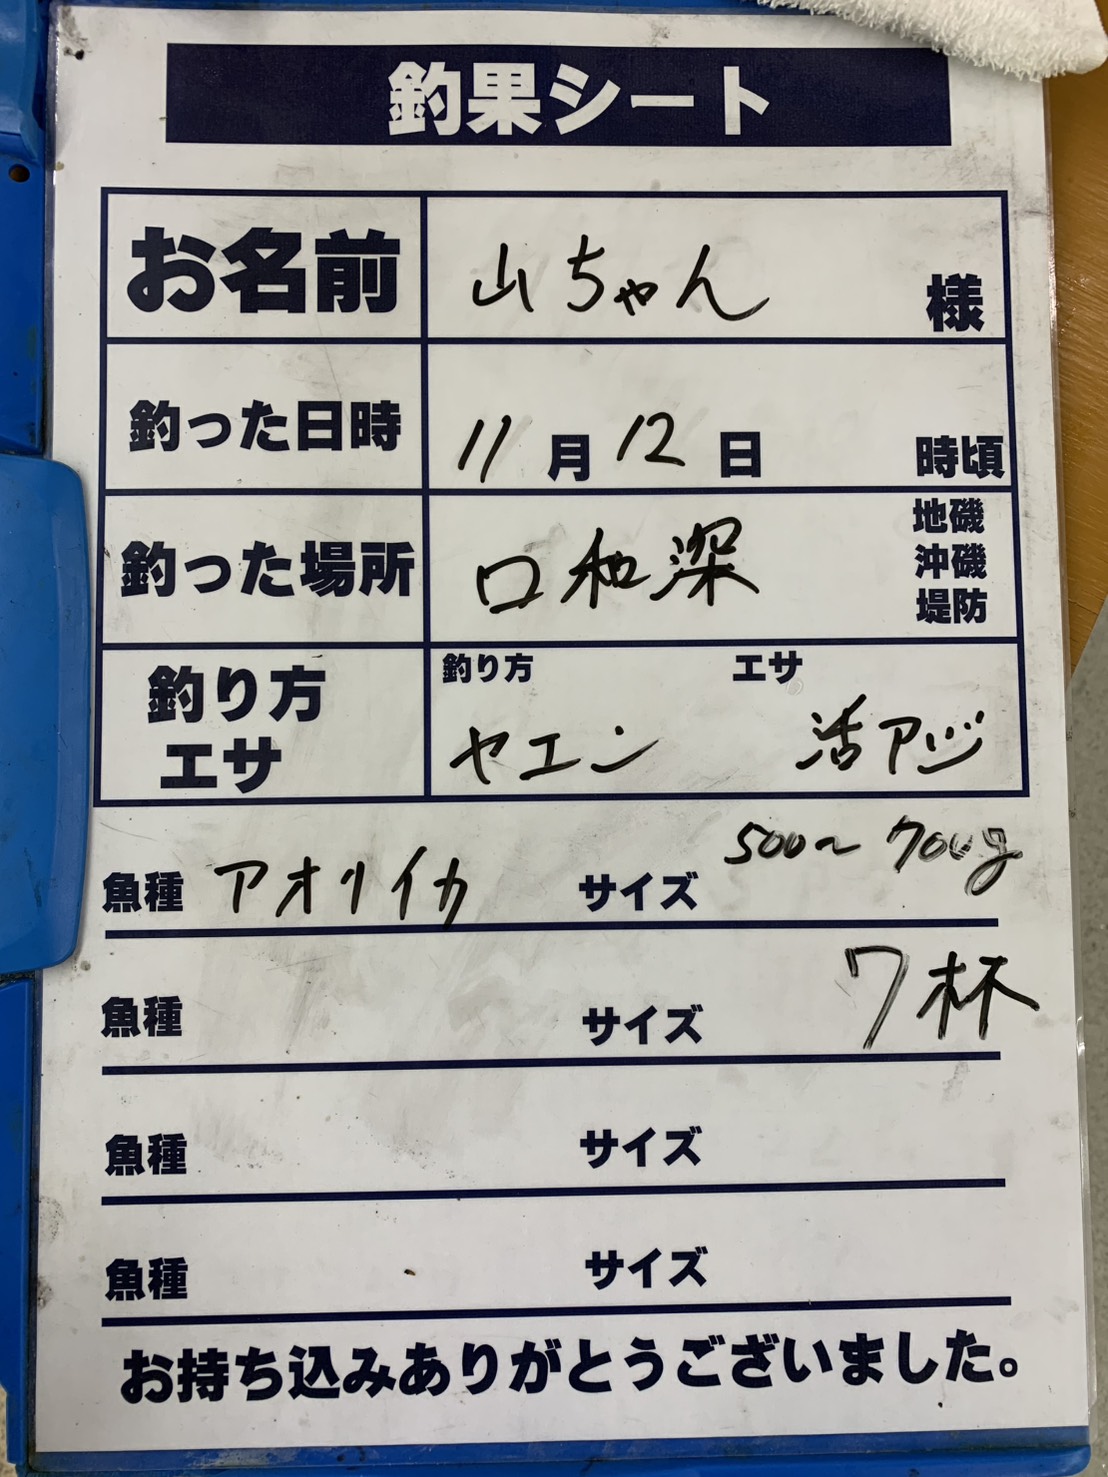 釣果シート
お名前 山ちゃん 様
釣った日時 11月12日 時頃
釣った場所 口和深 地磯
沖磯
堤防
釣り方 エサ
釣り方
エサ
ヤエン 活アジ
500~700g
魚種 アオリイカ サイズ
7杯
魚種 サイズ
魚種 サイズ
魚種 サイズ
お持ち込みありがとうございました。